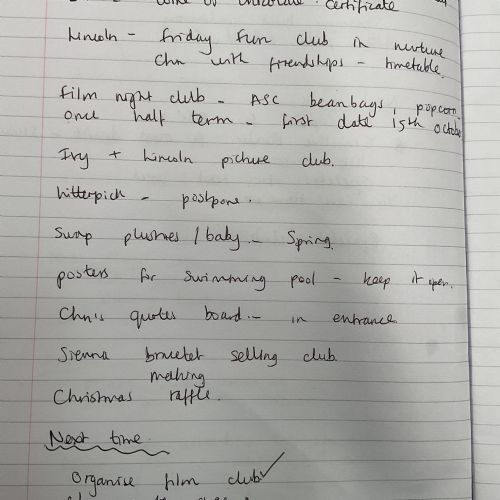 come of chocolate. certificate
Lincoln - friday fun club in nurture
Chn with friendships - timetable.
film night club - ASC beanbags, popcorn
once half term - first date 15th october
Ivy + Lincoln picture club.
litterpick - postpone.
Swap plushies / baby - Spring.
posters for swimming pool - keep it open.
Chn's quotes board - in entrance
Sienna bracelet selling club.
making
Christmas raffle.
Next time.
Organise film club ✓